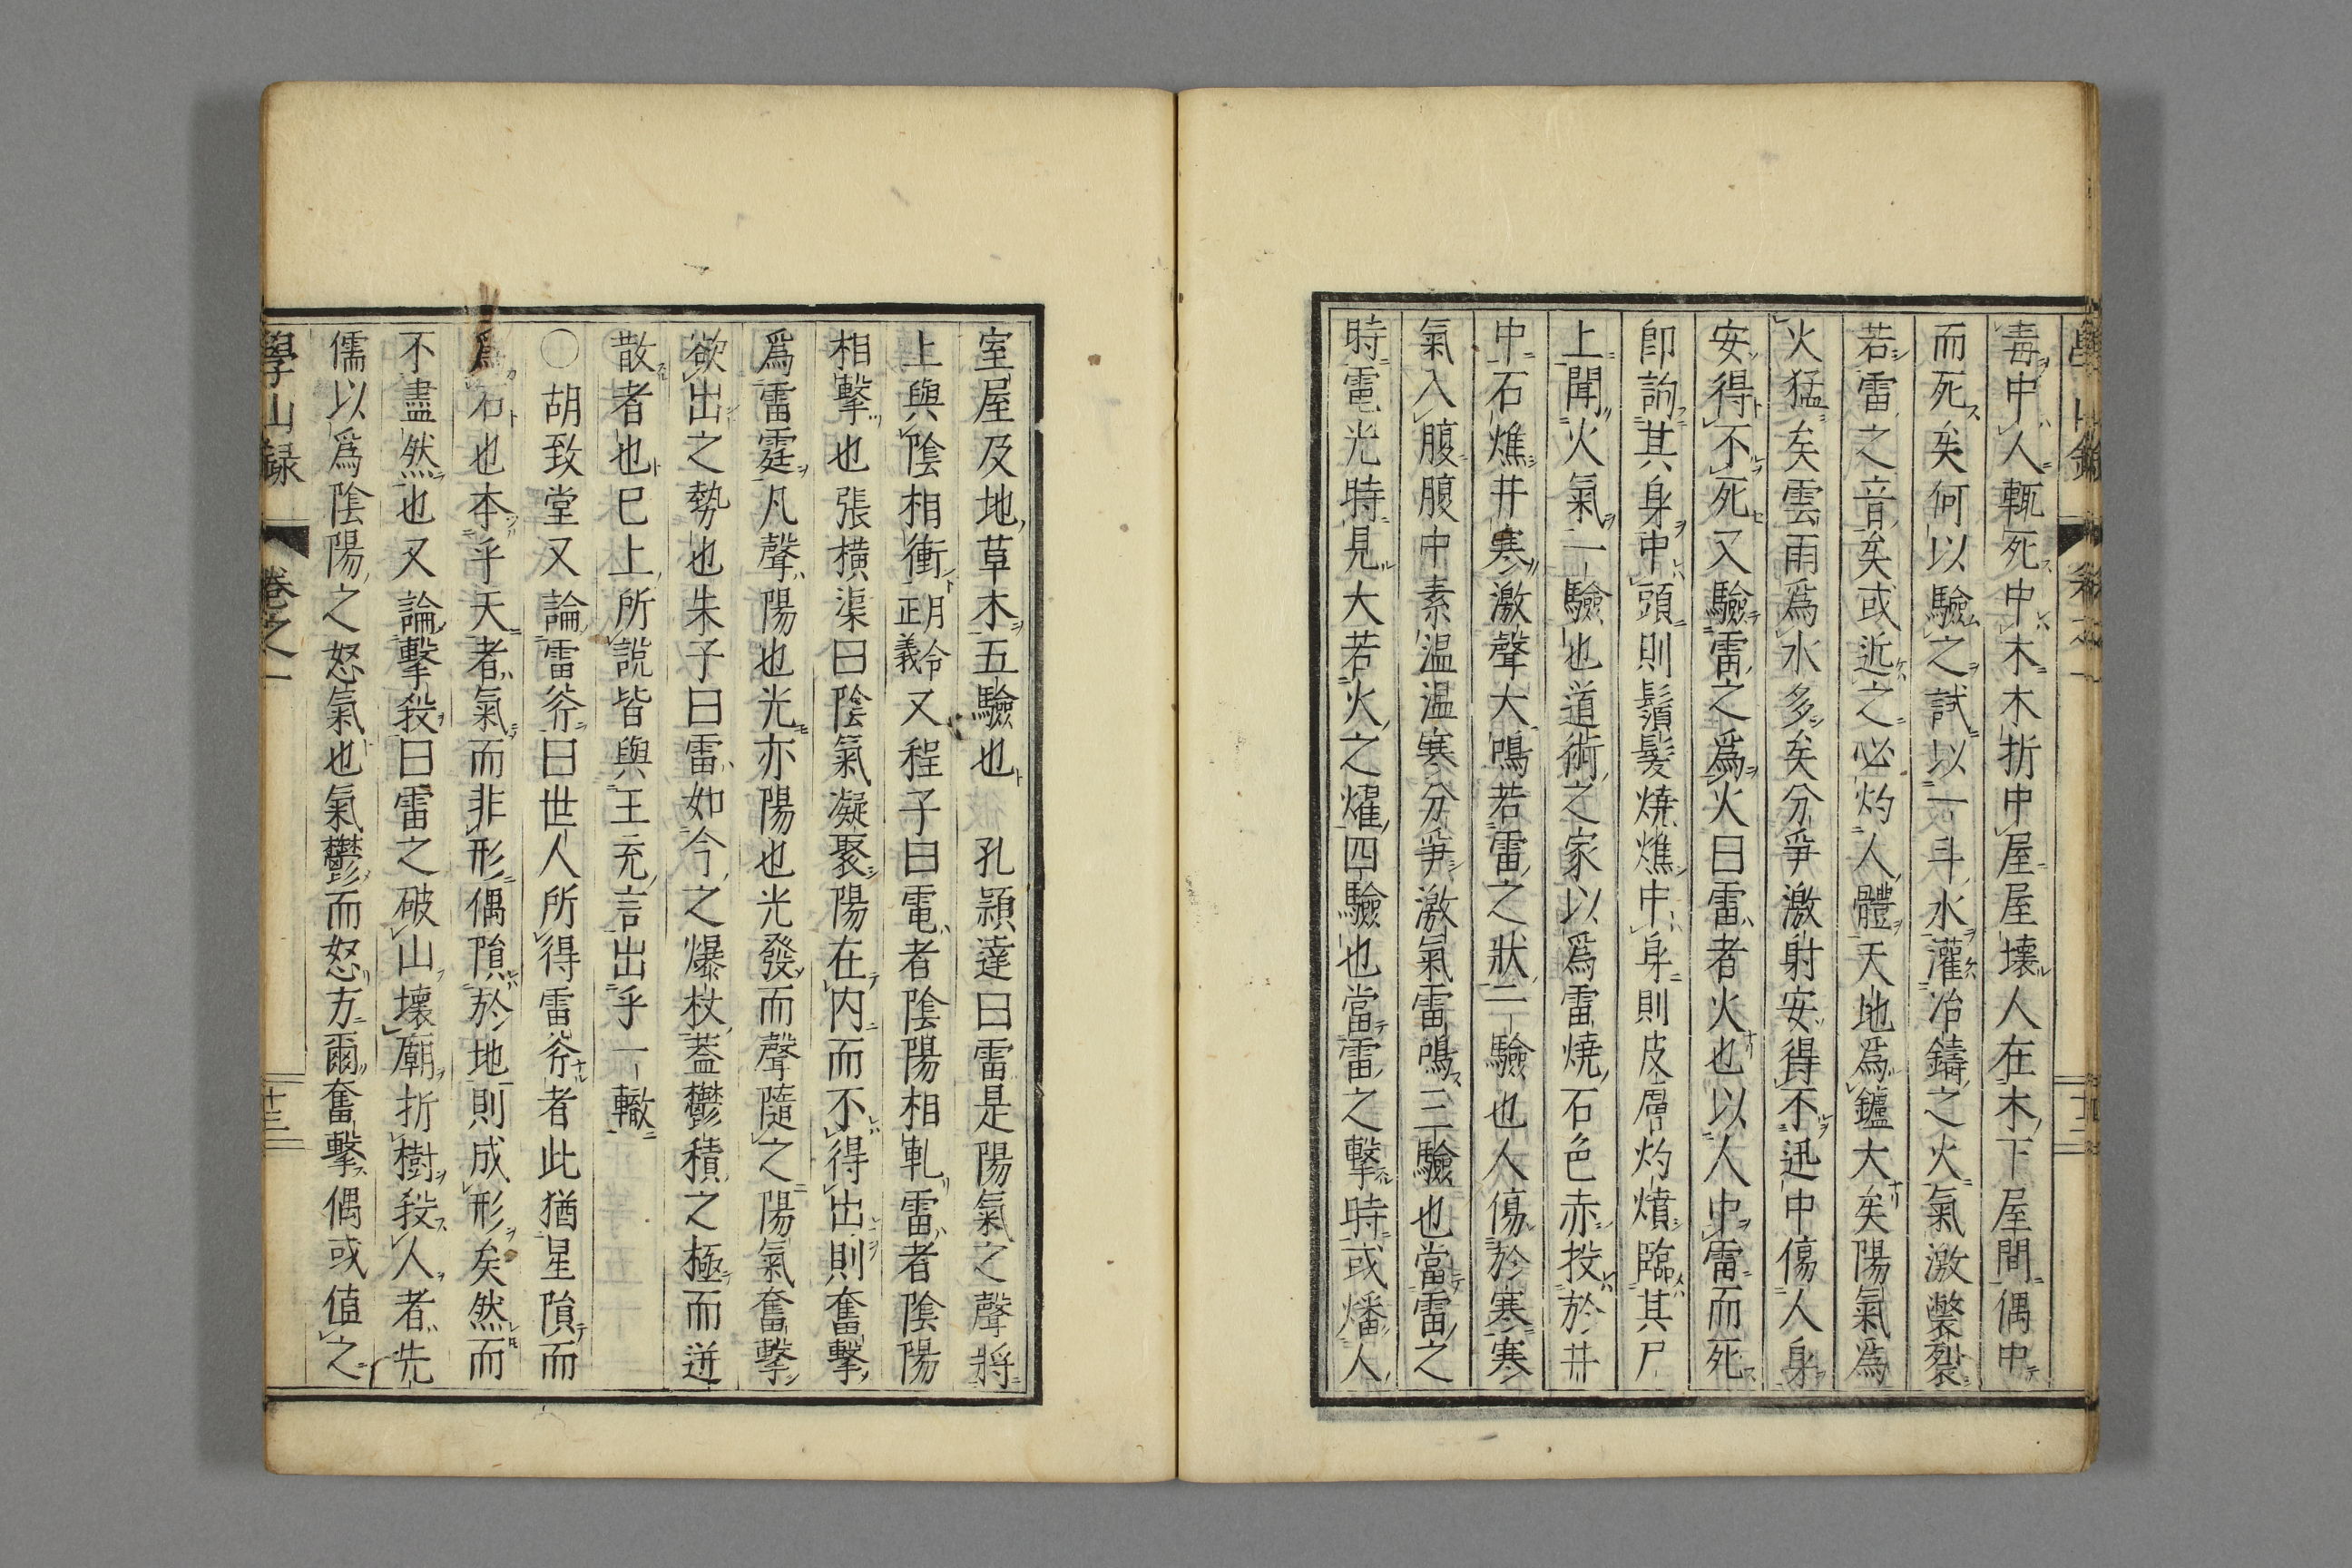 毒中人輒死中木木折中屋屋壞人在木下屋間偶中
而死矣何以驗之試以一斗水灌冶鑄之火氣激𢡱裂
若雷之音矣或近之必灼人體天地爲鑪大矣陽氣爲
火猛矣雲雨爲水多矣分爭激射安得不迅中傷人身
安得不死又驗雷之爲火曰雷者火也以人中雷而死
卽詢其身中頭則鬚髮燒燋中身則皮膚灼燌臨其尸
上聞火氣一驗也道術之家以爲雷燒石色赤投於井
中石燋井寒激聲大鳴若雷之狀二驗也人傷於寒寒
氣入腹腹中素溫溫寒分爭激氣雷鳴三驗也當雷之
時電光時見大若火之燿四驗也當雷之擊時或燔人
室屋及地草木五驗也　孔穎達曰雷是陽氣之聲將
上與陰相衝月令正義又程子曰電者陰陽相軋雷者陰陽
相擊也張橫渠曰陰氣凝聚陽在內而不得出則奮擊
爲雷霆凡聲陽也光亦陽也光發而聲隨之陽氣奮擊
欲出之勢也朱子曰雷如今之爆杖蓋鬱積之極而迸
散者也已上所說皆與王充言出乎一轍
〇胡致堂又論雷斧曰世人所得雷斧者此猶星隕而
爲石也本乎天者氣而非形偶隕於地則成形矣然而
不盡然也又論擊殺曰雷之破山壞廟折樹殺人者先
儒以爲陰陽之怒氣也氣鬱而怒方爾奮擊偶或値之
學山録　卷之一　十三